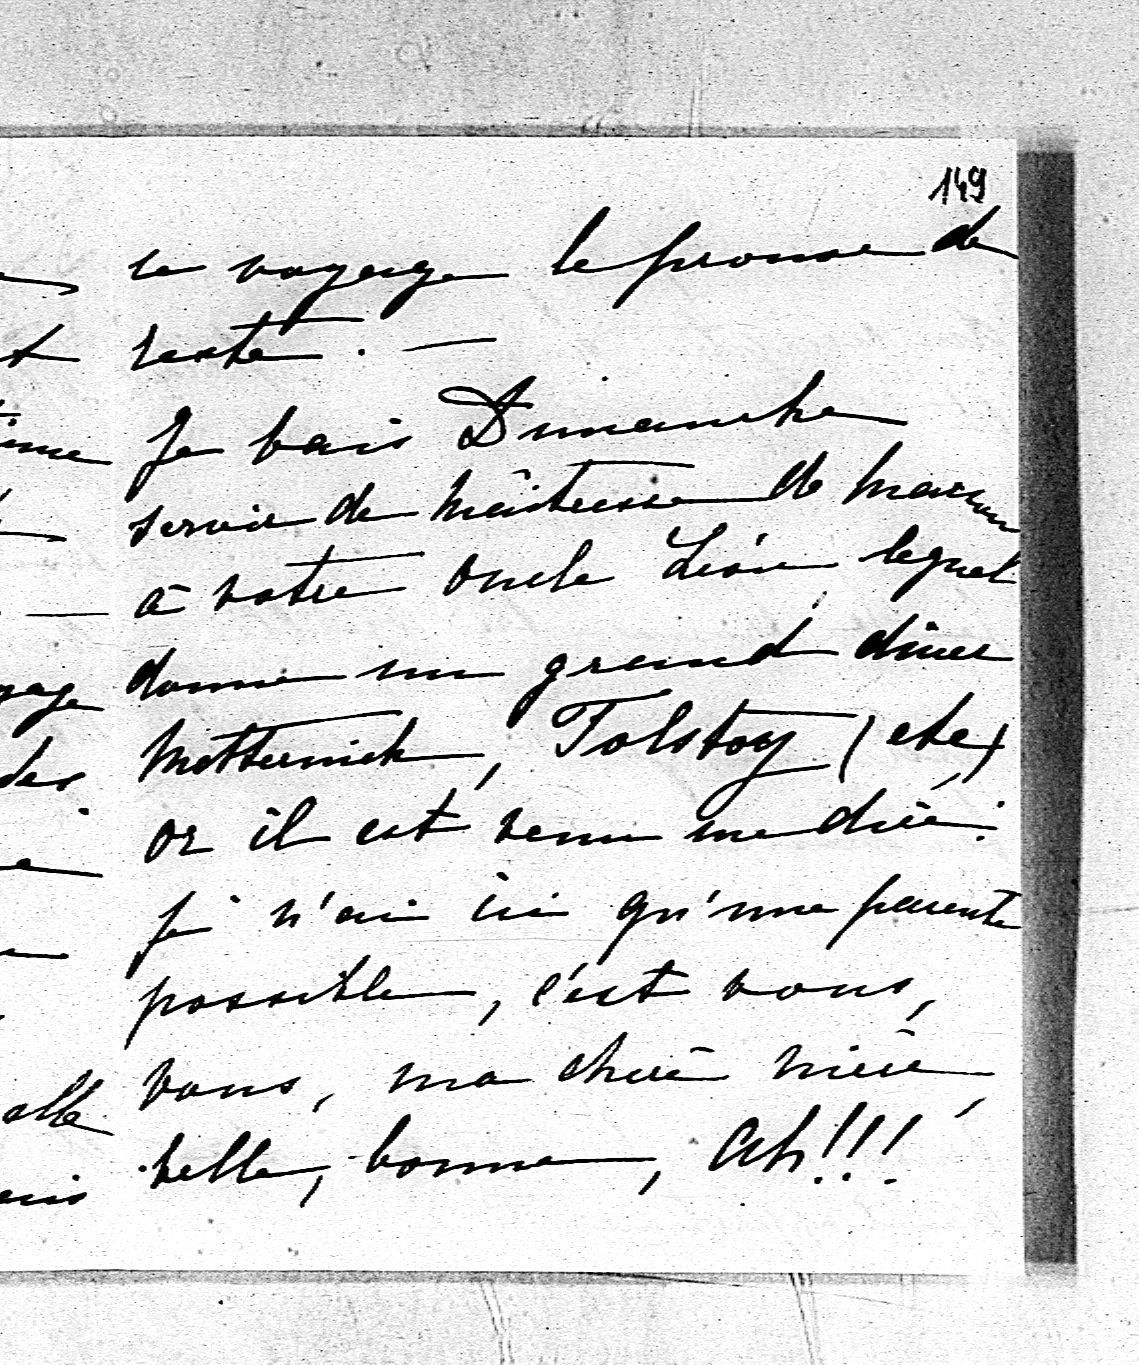 149
ce voyage le prouve de
reste. —
Je vais Dimanche
servir de maîtresse de maison
à votre oncle Léon, lequel
donne un grand dîner
Metternich, Tolstoy (etc)
or il est venu me dire:
je n'ai ici qu'une parente
possible, c'est vous,
vous, ma chère nièce,
belle, bonne, Ah!!!